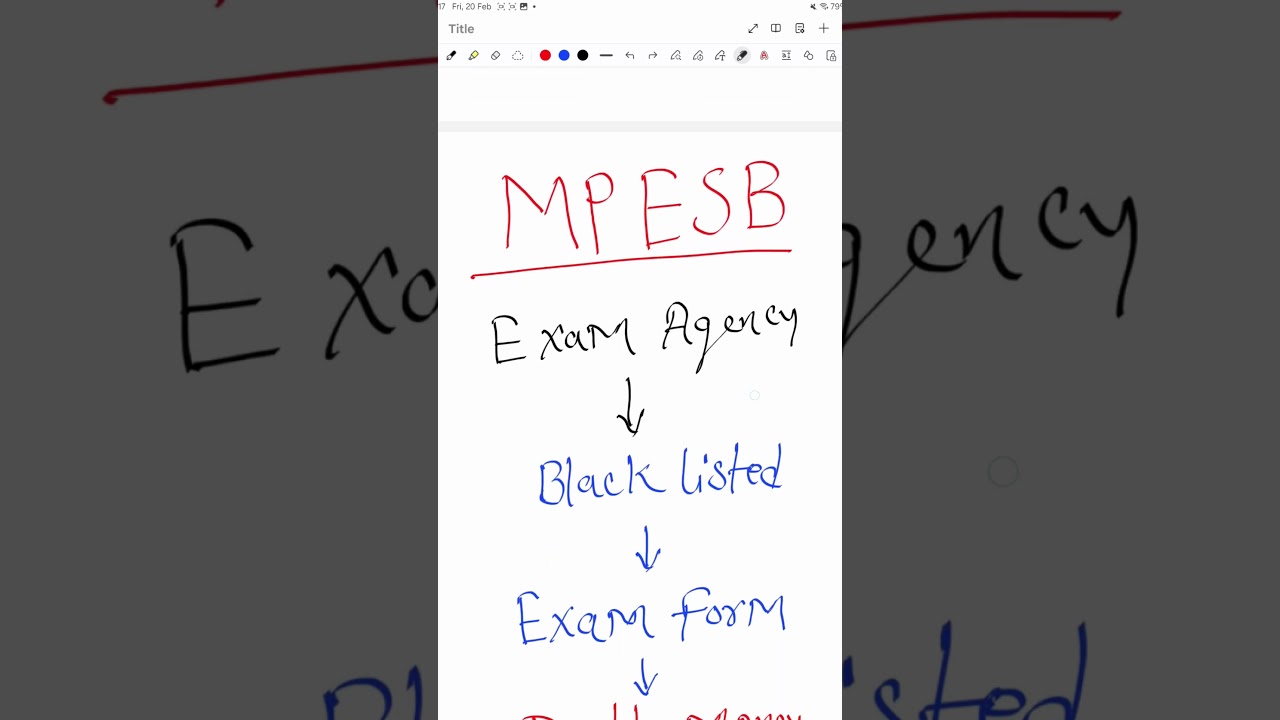 17 Fri, 20 Feb 79%
Title
MPESB
Exam Agency
Black listed
Exam form